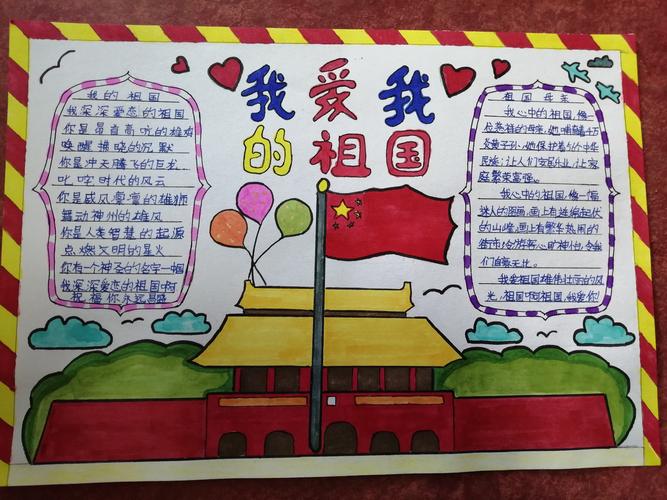 我爱我
的祖国
我的祖国
我深深爱恋的祖国
你是昂首高吭的雄鸡
唤醒拂晓的沉默
你是冲天腾飞的巨龙
叱咤时代的风云
你是威风凛凛的雄狮
舞动神州的雄风
你是人类智慧的起源
点燃文明的星火
你有一个神圣的名字一中国
我深深爱恋的祖国啊
祝福你永远昌盛
祖国母亲
我心中的祖国,像一
位慈祥的母亲,她哺育千万
炎黄子孙,她保护着5个中华
民族;让人们安居乐业,让家
庭繁荣富强。
我心中的祖国,像一幅
迷人的图画,画上有连绵起伏
的山峰,画上有繁华热闹的
街市,给游客心旷神怡,令我
们自豪无比。
我爱祖国雄伟壮丽的风
光,祖国啊祖国,我爱你!